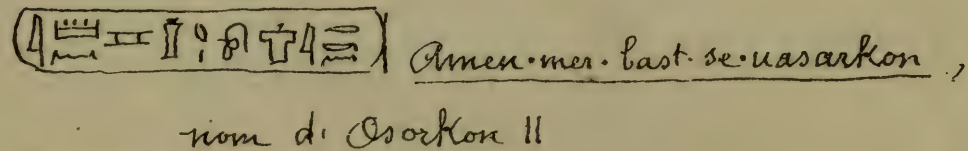 Amen·mer·bast·se·uasarkon,
nom d' Osorkon II